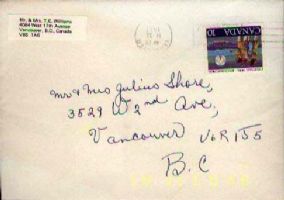 Mr. & Mrs. T.E. Williams
4084 West 17th Avenue
Vancouver, B.C., Canada
V6S 1A6
CANADA
10
Mr & Mrs Julius Shore,
3529 W 2nd Ave,
Vancouver V6R 1J5
B.C